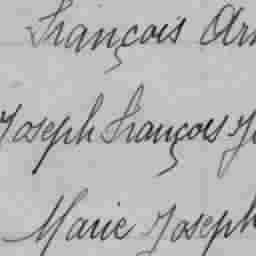 François
Joseph François
Marie Joseph